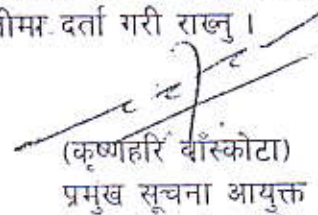 दर्ता गरी राख्नु ।
(कृष्णहरि बाँस्कोटा)
प्रमुख सूचना आयुक्त